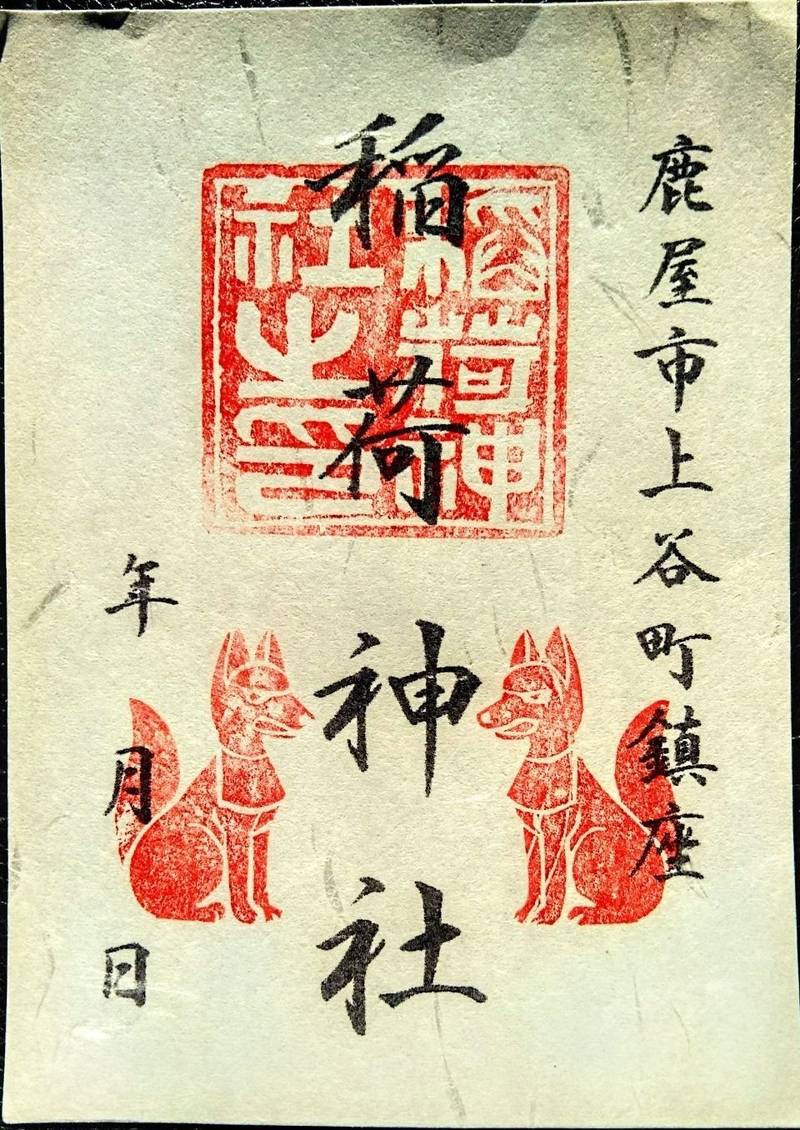 鹿屋市上谷町鎮座
稲荷神社
稲荷神
社之印
年 月 日